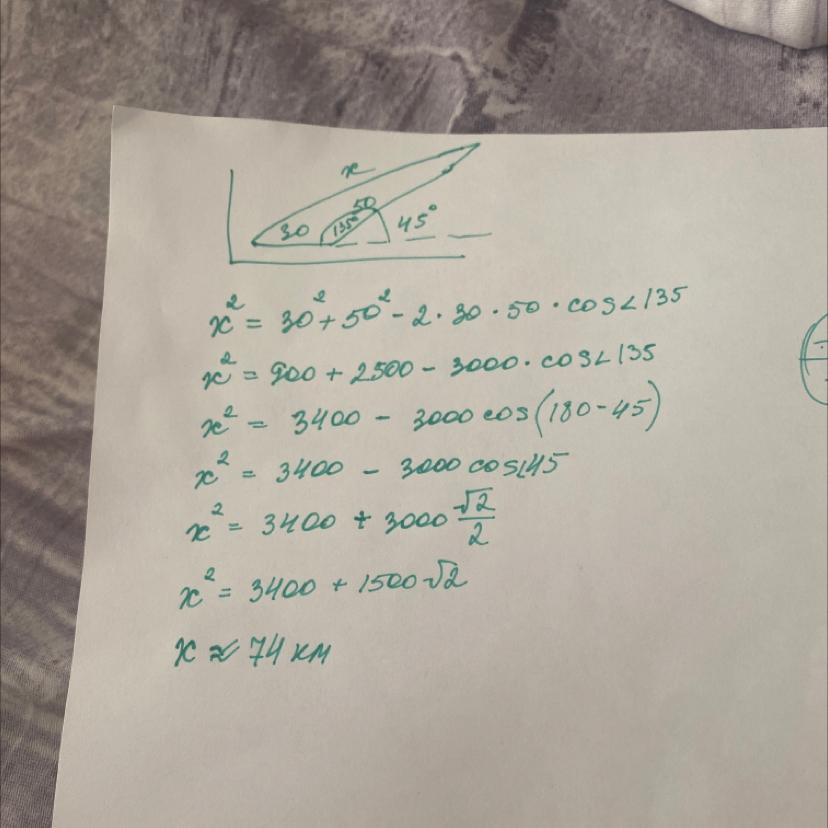 x
30 135° 50 45°
x² = 30² + 50² - 2 · 30 · 50 · cos∠135
x² = 900 + 2500 - 3000 · cos∠135
x² = 3400 - 3000 cos(180-45)
x² = 3400 - 3000 cos∠45
x² = 3400 + 3000 √2/2
x² = 3400 + 1500√2
x ≈ 74 км